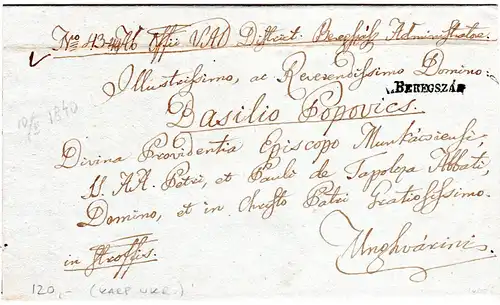 Nro 43 Ab Offi VAD District. Bereghász Administrator.
Illustrissimo, ac Reverendissimo Domino
BEREGSZÁZ
Basilio Popovics.
1840
Divina Providentia Episcopo Munkácsiensi,
SS. AA. Petri, et Pauli de Tapolcza Abbati,
Domino, et in Christo Patri Gratiosissimo.
Unghvárini
in
120,- (KARP UKR.)